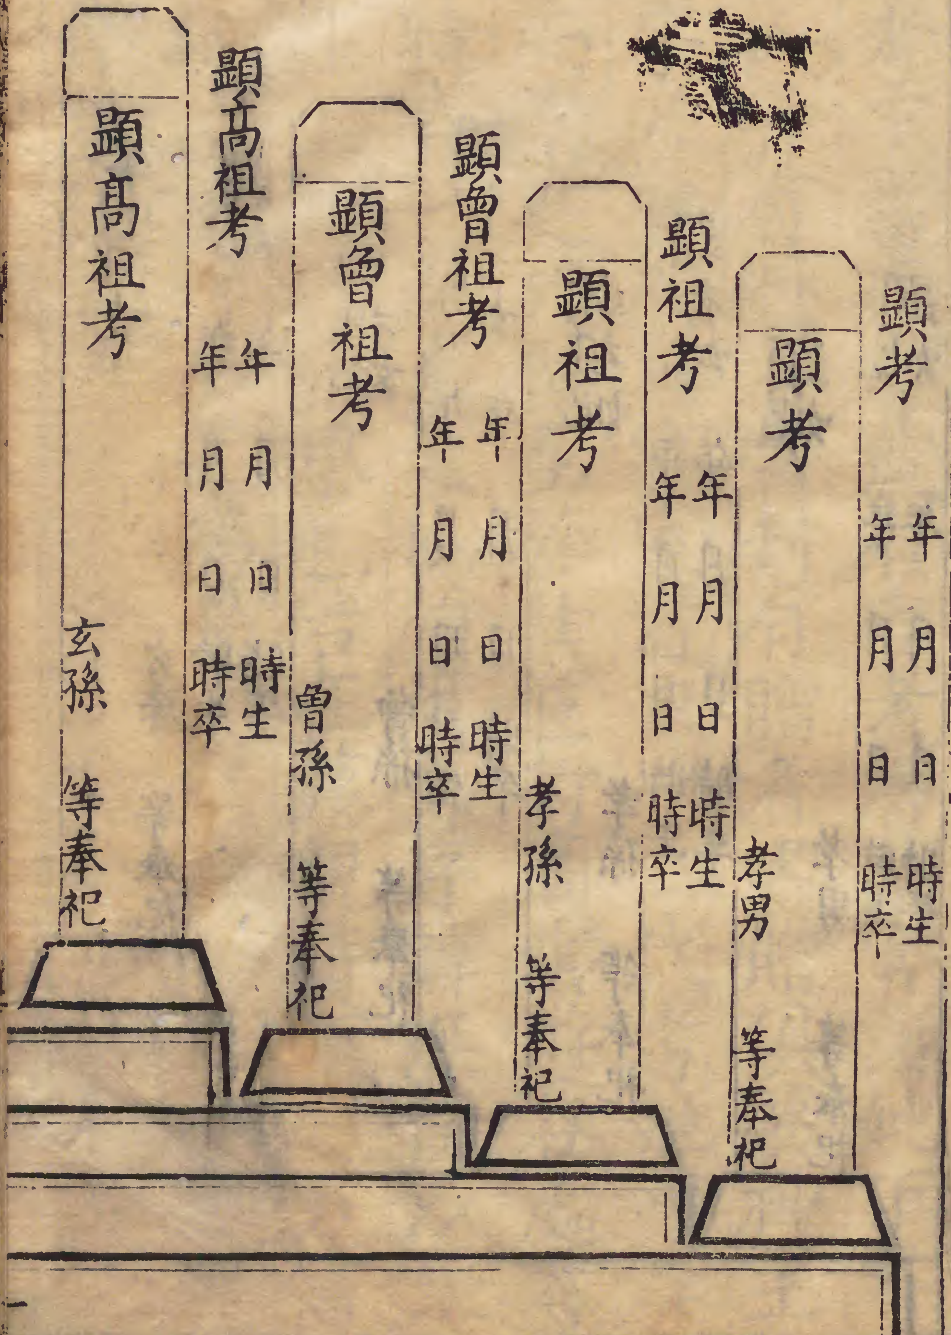 顕考
年月日時生
年月日時卒
顕考
孝男 等奉祀
顕祖考
年月日時生
年月日時卒
顕祖考
孝孫 等奉祀
顕曾祖考
年月日時生
年月日時卒
顕曾祖考
曾孫 等奉祀
顕髙祖考
年月日時生
年月日時卒
顕髙祖考
玄孫 等奉祀